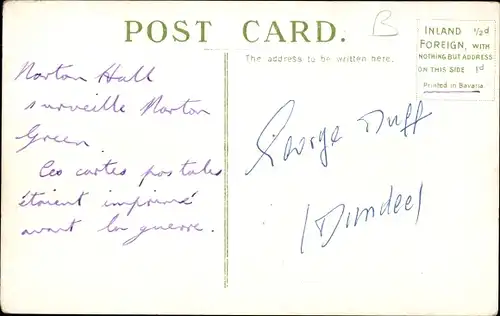 POST CARD.
B
INLAND ½d
FOREIGN, WITH
NOTHING BUT ADDRESS
ON THIS SIDE 1d
Printed in Bavaria
The address to be written here.
Norton Hall
surveille Norton
Green.
Ces cartes postales
étaient imprimé
avant la guerre.
George Duff
(Dundee)